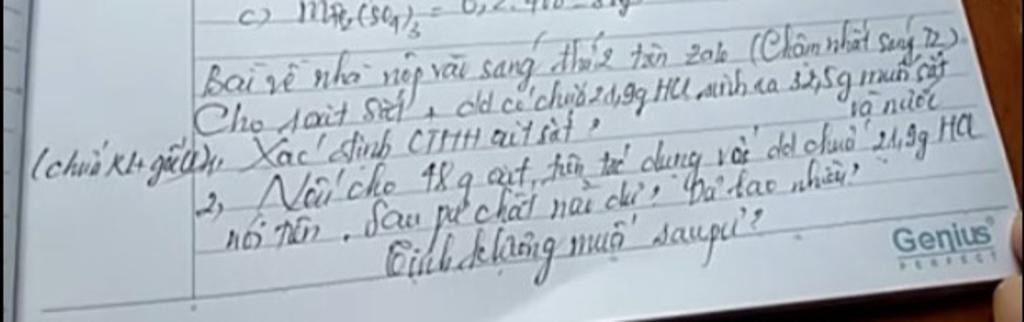 c) mFe2(SO4)3 = 0,2.400 =
Bài về nhà nộp vào sáng thứ 2 trên zalo (Chậm nhất sáng T2)
Cho 1 oxit sắt + dd có chứa 21,9g HCl sinh ra 32,5g muối sắt
và nước
(chưa KL + gốc) 1, Xác định CTHH oxit sắt?
2, Nếu cho 48g oxit trên tác dụng với dd chứa 21,9g HCl
nói trên. Sau pư chất nào dư? Dư bao nhiêu?
Tính k/lượng muối sau pư?
Genius
PERFECT